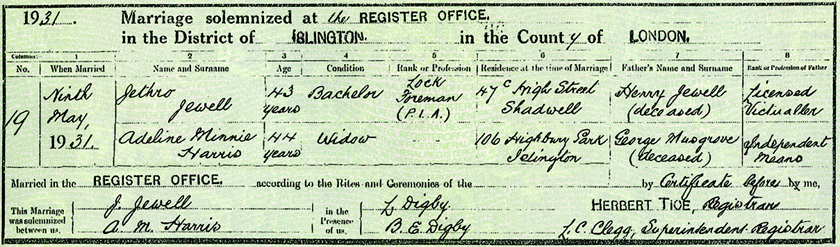 1931. Marriage solemnized at the REGISTER OFFICE.
in the District of ISLINGTON. in the County of LONDON.
Columns:— 1 2 3 4 5 6 7 8
No. When Married Name and Surname Age Condition Rank or Profession Residence at the time of Marriage Father's Name and Surname Rank or Profession of Father
19 Ninth May, 1931. Jethro Jewell 43 years Bachelor Lock Foreman (P.L.A.) 47c High Street Shadwell Henry Jewell (deceased) Licensed Victualler
Adeline Minnie Harris 44 years Widow 106 Highbury Park Islington George Musgrove (deceased) Independent Means
Married in the REGISTER OFFICE. according to the Rites and Ceremonies of the by Certificate before by me,
This Marriage was solemnized between us, J. Jewell A. M. Harris in the Presence of us, L. Digby B. E. Digby HERBERT TICE, Registrar
J. C. Clegg, Superintendent Registrar